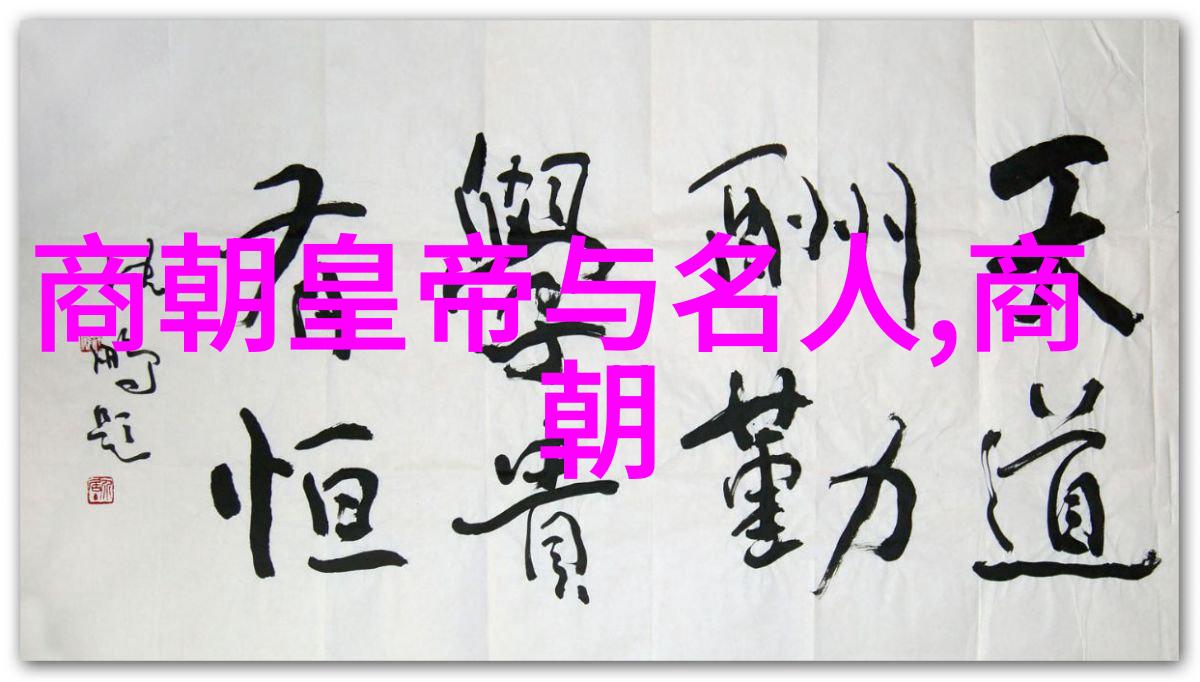 商朝皇帝与名人,商
朝
天道
酬勤
學貴
有恒
鹏题